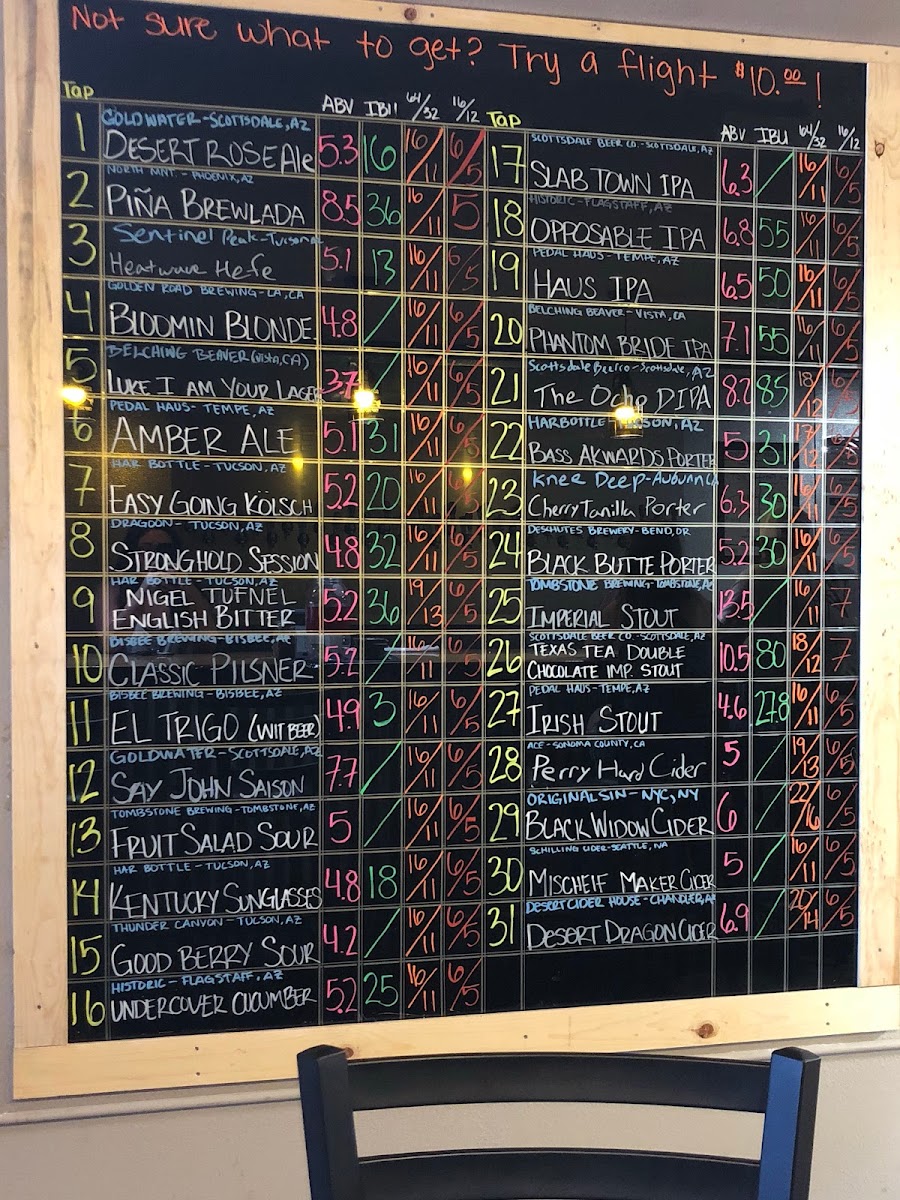 Not sure what to get? Try a flight $10.00!
Tap ABV IBU 64/32 16/12
1 GOLDWATER-SCOTTSDALE, AZ
DESERT ROSE Ale 5.3 16 16/11 6/5
2 NORTH MNT. - PHOENIX, AZ
PIÑA BREWLADA 8.5 36 16/11 5
3 Sentinel Peak-Tucson AZ
Heatwave Hefe 5.1 13 16/11 6/5
4 GOLDEN ROAD BREWING-LA, CA
BLOOMIN BLONDE 4.8 / 16/11 6/5
5 BELCHING BEAVER (Vista, CA)
LUKE I AM YOUR LAGER 3.7 / 16/11 6/5
6 PEDAL HAUS- TEMPE, AZ
AMBER ALE 5.1 31 16/11 6/5
7 HAR BOTTLE-TUCSON, AZ
EASY GOING KÖLSCH 5.2 20 16/11 6/5
8 DRAGOON- TUCSON, AZ
STRONGHOLD SESSION 4.8 32 16/11 6/5
9 HAR BOTTLE-TUCSON, AZ
NIGEL TUFNEL
ENGLISH BITTER 5.2 36 19/13 6/5
10 BISBEE BREWING-BISBEE, AZ
CLASSIC PILSNER 5.2 / 16/11 6/5
11 BISBEE BREWING- BISBEE, AZ
EL TRIGO (WIT BEER) 4.9 3 16/11 6/5
12 GOLDWATER-SCOTTSDALE, AZ
SAY JOHN SAISON 7.7 / 16/11 6/5
13 TOMBSTONE BREWING-TOMBSTONE, AZ
FRUIT SALAD SOUR 5 / 16/11 6/5
14 HAR BOTTLE - TUCSON, AZ
KENTUCKY SUNGLASSES 4.8 18 16/11 6/5
15 THUNDER CANYON - TUCSON, AZ
GOOD BERRY SOUR 4.2 / 16/11 6/5
16 HISTORIC- FLAGSTAFF, AZ
UNDERCOVER CUCUMBER 5.2 25 16/11 6/5
Tap ABV IBU 64/32 16/12
17 SCOTTSDALE BEER CO.-SCOTTSDALE, AZ
SLAB TOWN IPA 6.3 / 16/11 6/5
18 HISTORIC-FLAGSTAFF, AZ
OPPOSABLE IPA 6.8 55 16/11 6/5
19 PEDAL HAUS- TEMPE, AZ
HAUS IPA 6.5 50 16/11 6/5
20 BELCHING BEAVER-VISTA, CA
PHANTOM BRIDE IPA 7.1 55 16/11 6/5
21 Scottsdale Beer co-Scottsdale, AZ
The Ocho DIPA 8.2 85 18/12 6/5
22 HARBOTTLE - TUCSON, AZ
BASS AKWARDS PORTER 5 31 17/12 6/5
23 Knee Deep-Auburn CA
Cherry Tanilla Porter 6.3 30 16/11 6/5
24 DESHUTES BREWERY-BEND, OR
BLACK BUTTE PORTER 5.2 30 16/11 6/5
25 TOMBSTONE BREWING-TOMBSTONE, AZ
IMPERIAL STOUT 13.5 / 16/11 7
26 SCOTTSDALE BEER CO.-SCOTTSDALE, AZ
TEXAS TEA DOUBLE
CHOCOLATE IMP. STOUT 10.5 80 18/12 7
27 PEDAL HAUS-TEMPE, AZ
IRISH STOUT 4.6 27.8 16/11 6/5
28 ACE - SONOMA COUNTY, CA
Perry Hard Cider 5 / 19/13 6/5
29 ORIGINAL SIN-NYC, NY
BLACK WIDOW CIDER 6 / 22/16 6/5
30 SCHILLING CIDER-SEATTLE, WA
MISCHEIF MAKER CIDER 5 / 16/11 6/5
31 DESERT CIDER HOUSE-CHANDLER, AZ
DESERT DRAGON CIDER 6.9 / 20/14 6/5